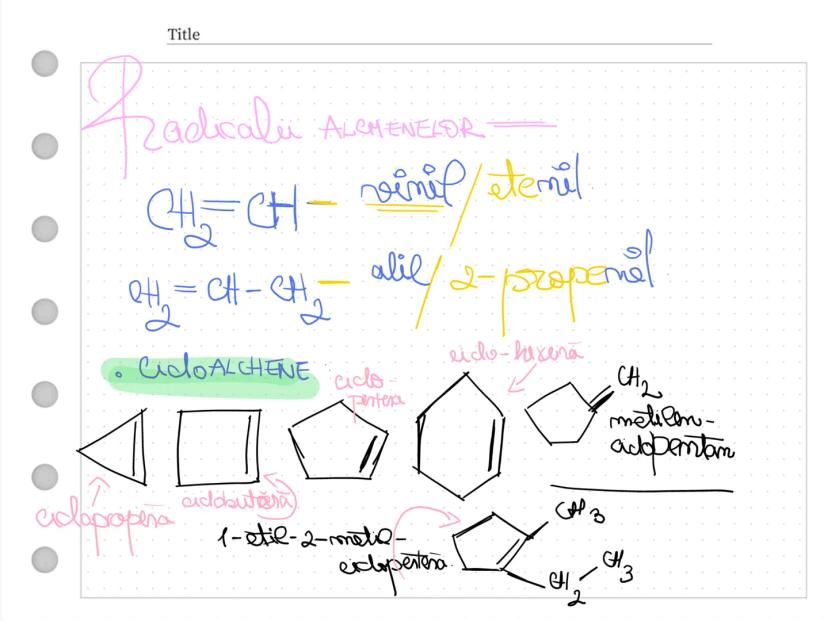 Title
Radicalii ALCHENELOR
CH2=CH- vinil/etenil
CH2=CH-CH2- alil/2-propenil
• CicloALCHENE
ciclo-
pentena
ciclo-hexenă
CH2
metilen-
ciclopentan
ciclopropenă
ciclobutenă
1-etil-2-metil-
ciclopentenă
CH3
CH2
CH3